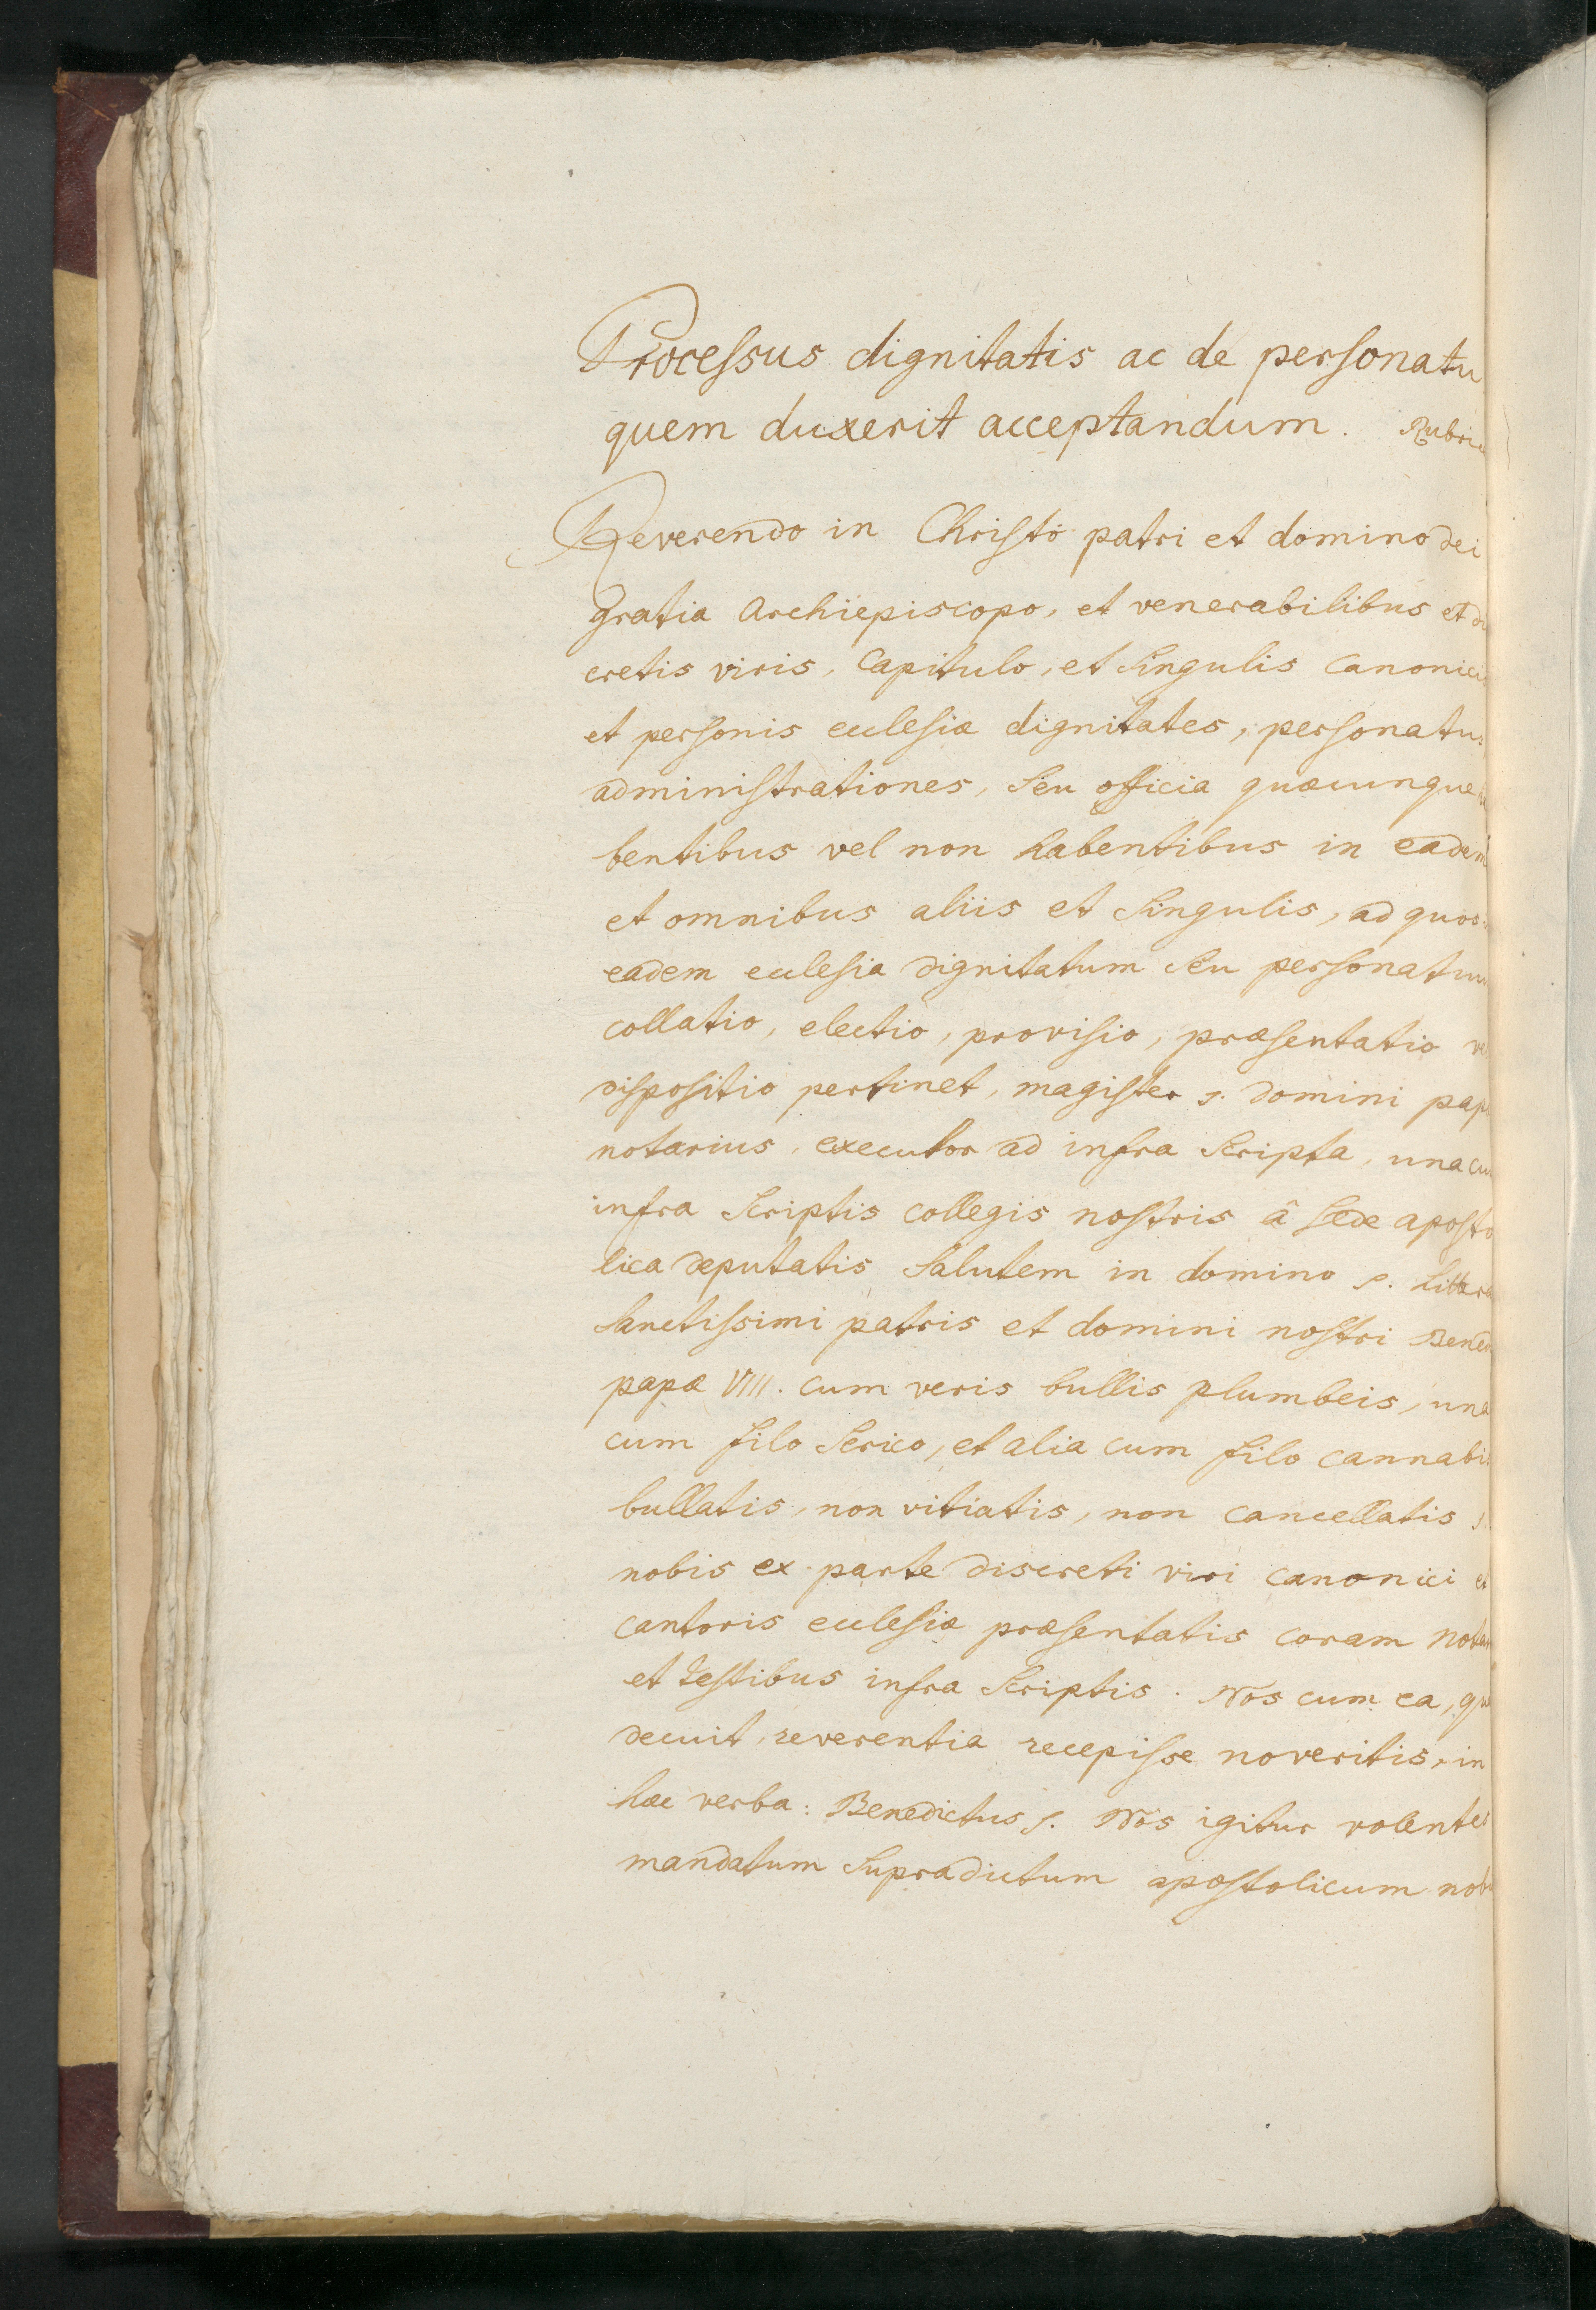 Processus dignitatis ac de personatu
quem duxerit acceptandum. Rubri
Reverendo in Christo patri et domino dei
gratia Archiepiscopo, et venerabilibus et di
cretis viris, Capitulo, et singulis Canonici
et personis ecclesiæ dignitates, personatus
administrationes, seu officia quæcunque
bentibus vel non habentibus in eadem
et omnibus aliis et singulis, ad quos
eadem ecclesia dignitatum seu personatuu
collatio, electio, provisio, præsentatio ve
dispositio pertinet, magister s. domini pap
notarius, executor ad infra scripta, una cu
infra scriptis collegis nostris â sede aposto
lica deputatis salutem in domino s. litera
sanctissimi patris et domini nostri Bened
papæ VIII. cum veris bullis plumbeis, una
cum filo serico, et alia cum filo cannabi
bullatis, non vitiatis, non cancellatis s
nobis ex parte discreti viri canonici et
cantoris ecclesiæ præsentatis coram nota
et testibus infra scriptis. Nos cum ea, qu
decuit, reverentia recepisse noveritis, in
hæc verba: Benedictus s. Nos igitur volentes
mandatum supradictum apostolicum nob